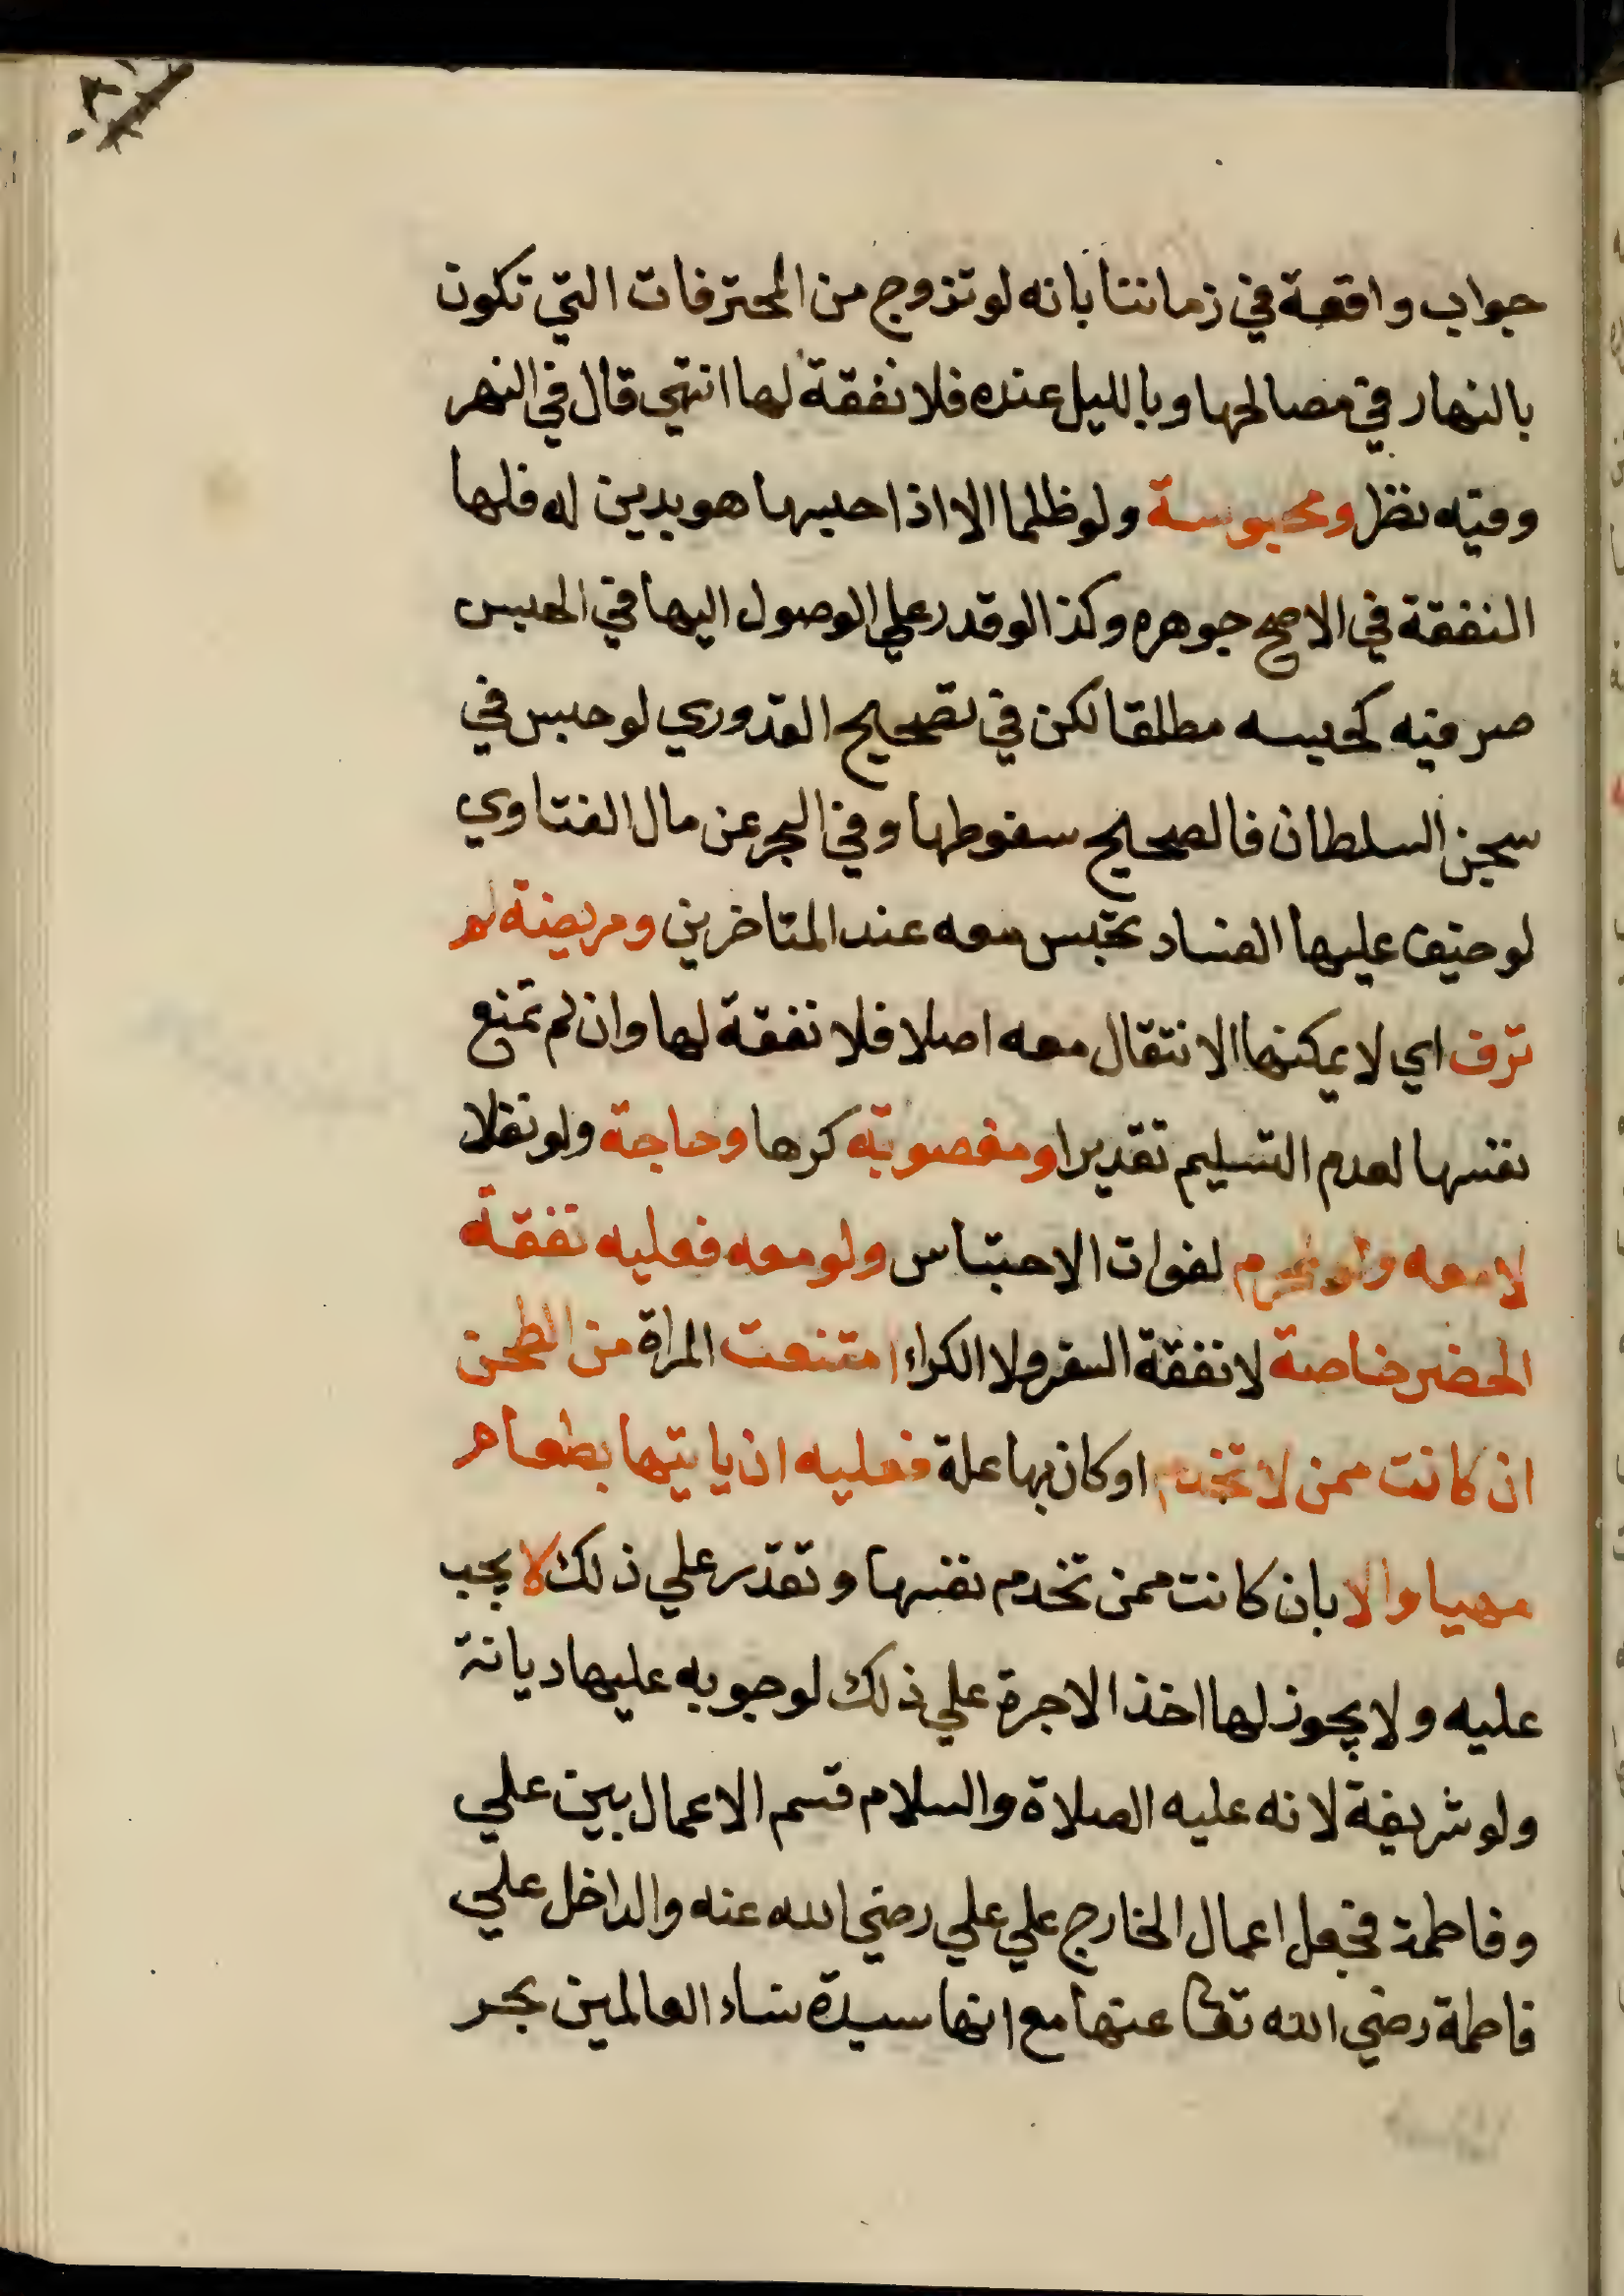 جواب واقعة في زماننا بانه لو تزوج من المحترفات التي تكون
بالنهار في مصالحها وبالليل عنده فلا نفقة لها انتهي قال في النهر
وفيه نظر ومحبوسة ولو ظلما الا اذا حبسها هو بدين له فلها
النفقة في الاصح جوهره وكذا لو قدر علي الوصول اليها في الحبس
صرفيه كحبسه مطلقا لكن في تصحيح القدوري لو حبس في
سجن السلطان فالصحيح سقوطها وفي البحر عن مال الفتاوي
لو خيف عليها الفساد تحبس معه عند المتاخرين ومريضة لم
تزف اي لا يمكنها الانتقال معه اصلا فلا نفقة لها وان لم تمنع
نفسها لعدم التسليم تقديرا ومغصوبة كرها وحاجة ولو نفلا
لا معه ولو بمحرم لفوات الاحتباس ولو معه فعليه نفقة
الحضر خاصة لا نفقة السفر ولا الكراء امتنعت المراة من الطحن
ان كانت ممن لا تخدم او كان بها علة فعليه ان ياتيها بطعام
مهيا والا بان كانت ممن تخدم نفسها وتقدر علي ذلك لا يجب
عليه ولا يجوز لها اخذ الاجرة علي ذلك لوجوبه عليها ديانة
ولو شريفة لانه عليه الصلاة والسلام قسم الاعمال بين علي
وفاطمة فجعل اعمال الخارج علي علي رضي الله عنه والداخل علي
فاطمة رضي الله تعا عنها مع انها سيدة نساء العالمين بحر